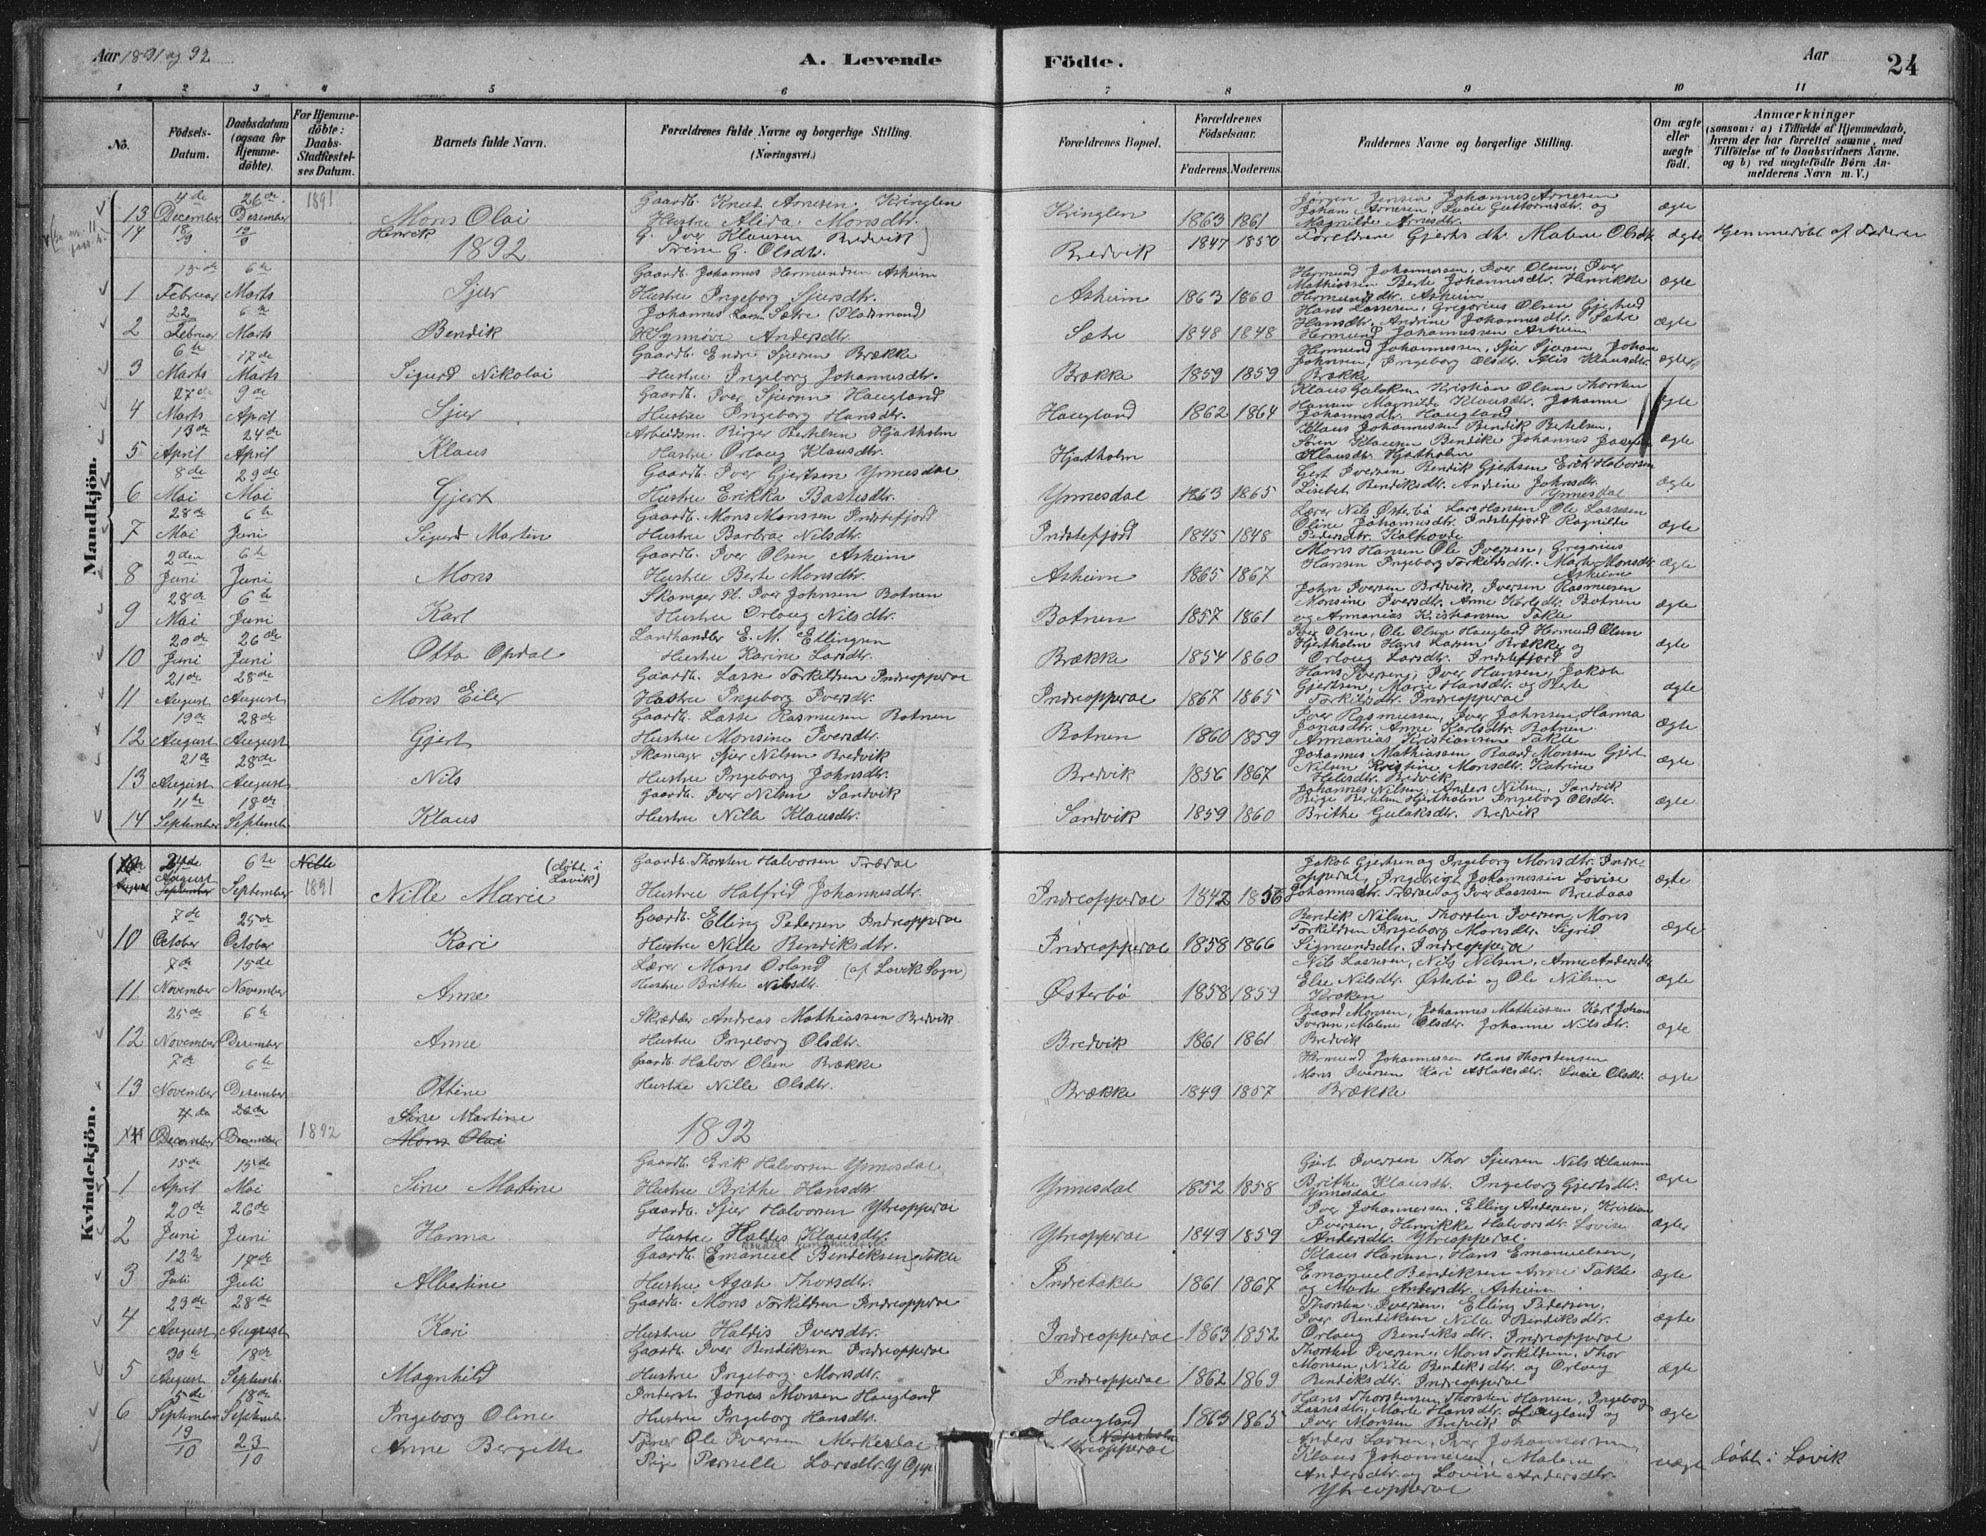 Aar 1891 og 92
A. Levende Födte.
Aar
24
1 2 3 4 5 6 7 8 9 10 11
No.
Födsels-Datum.
Daabsdatum (ogsaa for Hjemme-døbte).
For Hjemme-døbte: Daabs-Stadfæstel-ses Datum.
Barnets fulde Navn.
Forældrenes fulde Navne og borgerlige Stilling. (Næringsvei.)
Forældrenes Bopæl.
Forældrenes Födselsaar.
Faderens. Moderens.
Faddernes Navne og borgerlige Stilling.
Om ægte eller uægte födt.
Anmærkninger
(saasom: a) i Tilfælde af Hjemmedaab, hvem der har forrettet samme, med Tilföielse af to Daabsvidners Navne, og b) ved uægtefödte Börn An-melderens Navn m. V.)
Mandkjön.
13 4de December 26de Desember 1891 Mons Olai Gaardb. Knut Arnesen Kringlen Hustru Alida Monsdtr. Kringlen 1863 1861 Jørgen Jensen Johannes Arnesen Johan Arnesen, Lucie Guttormsdtr. og Magnilde Arnesdtr. ægte
14 Henrik G. Iver Klausen Bredvik G. Olsdtr. Bredvik 1847 1850 Malene Olsdtr ægte Hjemmedøbt af Faderen
1892
1 Februar 6te Marts Sjur Gaardb. Johannes Hermundsen Asheim Hustru Ingeborg Sjursdtr. Asheim 1863 1860 Hermund Johannessen, Iver Olsen, Iver Mathiassen Berte Johannesdtr. Henrikke Hermundsdtr. Asheim ægte
2 22 Februar 6te Marts Bendik Johannes Larsen Sætre (Pladsmand) H. Synnøve Andersdtr. Sætre 1848 1848 Hans Lassesen, Gregorius Olsen Gjertrud Hansdtr. Andrine Johannesdtr. Sætre Hermund Johannessen Asheim ægte
3 6te Marts 17de Marts Sigurd Nikolai Gaardb. Endre Sjursen Brække Hustru Ingeborg Johannesdtr. Brække 1859 1859 Hermund Johannessen, Sjur Sjursen Johan Johnsen, Ingeborg Olsdtr. Klausdtr. Brække ægte
4 27de Marts 9de April Sjur Gaardb. Iver Sjursen Haugland Hustru Ingeborg Hansdtr. Haugland 1862 1864 Klaus Kristian Olsen Thorsten Hansen Magnilde Klausdtr. Johanne Johannesdtr. Haugland ægte
5 13de April 24de April Klaus Arbeidsm. Birger Bertelsen Hjartholm Hustru Orloug Klausdtr. Hjartholm Klaus Johannessen Bendik Bertelsen, Søren Klausen Bendike Johannes Klausdtr. Hjartholm ægte
6 8de Mai 29de Mai Gjert Gaardb. Iver Gjertsen Ynnesdal Hustru Erikka Bastesdtr. Ynnesdal 1863 1865 Gert Iversen Bendik Gjertsen Erik Halvorsen Lisebet Bendiksdtr. Andrine Johnsdtr. Ynnesdal ægte
7 28de Mai 6te Juni Sigurd Martin Gaardb. Mons Monssen Indstefjord Hustru Barbra Nilsdtr. Indstefjord 1845 1848 Lærer Nils Østerbø Lars Hansen Ole Lassesen Oline Johannesdtr. Indstefjord Ragnilde Pedersdtr. Kalhovde ægte
8 2den Juni 6te Juni Mons Gaardb. Iver Olsen Asheim Hustru Berte Monsdtr. Asheim 1865 1867 Mons Hansen Ole Iversen, Gregorius Hansen Ingeborg Torkildsdtr. Marte Monsdtr Asheim ægte
9 28de Mai 6te Juni Karl Skomager Pl. Iver Johnsen Botnen Hustru Orloug Nilsdtr. Botnen 1857 1861 John Iversen Bredvik, Iversen Rasmusen Monsine Iversdtr. Anne Karlsdtr. Botnen og Armanias Kristiansen Takle ægte
10 20de Juni 26de Juni Otto Opdal Landhandler E. M. Ellingsen Hustru Karine Larsdtr. Brække 1854 1860 Iver Olsen, Ole Olsen Haugland Hermund Olsen Hjertholm Hans Larsen Brække og Orloug Larsdtr. Indstefjord ægte
11 21de August 28de August Mons Eiler Gaardb. Lasse Torkildsen Indreopperdal Hustru Ingeborg Iversdtr. Indreopperdal 1867 1865 Hans Iversen, Iver Hansen, Jakob Gjertsen, Marie Hansdtr. og Berte Torkildsdtr. Indreopperdal ægte
12 19de August 28de August Gjert Gaardb. Lasse Rasmusen Botnen Hustru Monsine Iversdtr. Botnen 1860 1859 Iver Rasmussen, Iver Johnsen, Hanna Jonasdtr. Anne Karlsdtr. Botnen Armanias Kristiansen Takle ægte
13 21de August 28de August Nils Skomager Sjur Nilsen Bredvik Hustru Ingeborg Johnsdtr. Bredvik 1856 1867 Johannes Mathiassen Baard Monsen Gjert Nilsen Kristine Monsdtr. Katrine Bredvik ægte
14 11te September 18de Septemb. Klaus Gaardb. Iver Nilsen Sandvik Hustru Nille Klausdtr. Sandvik 1859 1860 Johannes Nilsen, Anders Nilsen, Sandvik Birge Bertelsen Hjertholm Ingeborg Olsdtr. Brithe Gulaksdtr. Bredvik ægte
Kvindekjön.
August 6te September 1891 Nille Marie (døbt i Lavik) Gaardb. Thorsten Halvorsen Trædal Hustru Halfrid Johannesdtr. Indreopperdal 1842 1856 Jakob Gjertsen og Ingeborg Monsdtr. Indreopperdal, Ingebrigt Johannessen Lovise Johannesdtr. Trædal og Iver Lassesen Bredaas ægte
10 7de October 25de October Kari Gaardb. Elling Pedersen Indreopperdal Hustru Nille Bendiksdtr. Indreopperdal 1858 1866 Bendik Nilsen, Thorsten Iversen, Mons Torkildsen Ingeborg Monsdtr. Sigrid Sigmundsdtr. Indreopperdal ægte
11 7de November 15de November Anne Lærer Mons Orland (af Lavik Sogn) Hustru Brithe Nilsdtr. Østerbø 1858 1859 Nils Lassesen, Nils Nilsen, Anne Andersdtr Else Nilsdtr. Østerbø og Ole Nilsen Kroken ægte
12 25de November 6te Desember Anne Skrædder Andreas Mathiassen Bredvik Hustru Ingeborg Olsdtr. Bredvik 1861 1861 Baard Monsen, Johannes Mathiassen Karl Johan Iversen, Malene Olsdtr. Johanne Nilsdtr. Bredvik ægte
13 7de November 6te Desember Othine Gaardb. Halvor Olsen Brække Hustru Nille Olsdtr. Brække 1849 1857 Hermund Johannessen Hans Thorstensen Mons Iversen Kari Aslaksdtr. Lucie Olsdtr. Brække ægte
14 4de December 26de December 1892 Sine Martine Mons Olai
1892
1 15de April 15de Mai Sine Martine Gaardb. Erik Halvorsen Ynnesdal Hustru Brithe Hansdtr. Ynnesdal 1852 1858 Gjert Iversen Thor Sjursen Nils Klausen Brithe Klausdtr. Ingeborg Gjertsdtr. Ynnesdal ægte
2 20de Juni 26de Juni Hanna Gaardb. Sjur Halvorsen Ytreopperdal Hustru Haldis Klausdtr. Ytreopperdal 1849 1859 Iver Johannessen, Elling Andersen, Kristian Iversen, Henrikke Halvorsdtr. Lovise Andersdtr. Ytreopperdal. ægte
3 12te Juli 17de Juli Albertine Gaardb. Emanuel Bendiksen Takle Hustru Agate Thorsdtr. Indretakle 1861 1867 Klaus Hansen, Hans Emanuelsen, Emanuel Bendiksen Anne Takle og Marte Andersdtr. Asheim ægte
4 23de August 28de August Kari Gaardb. Mons Torkildsen Indreopperdal Hustru Haldis Iversdtr. Indreopperdal 1863 1852 Thorsten Iversen, Elling Pedersen, Iver Bendiksen Nille Bendiksdtr. Orloug Bendiksdtr. Indreopperdal ægte
5 30te August 18de Septemb. Magnhild Gaardb. Iver Bendiksen Indreopperdal Hustru Ingeborg Monsdtr. Indreopperdal 1862 1869 Thorsten Iversen, Mons Torkildsen, Thor Monsen, Nille Bendiksdtr. og Orloug Bendiksdtr. Indreopperdal ægte
6 5de September 18de Septemb. Ingeborg Oline Inderst Jonas Monsen Haugland Hustru Ingeborg Hansdtr. Haugland 1863 1865 Hans Thorstensen, Thorsten Hansen, Ingeborg Lassesdtr. Marte Hansdtr. Haugland og Iver Monsen Bredvik ægte
19/10 23/10 Anne Bergitte Tjener Ole Iversen Pige Pernille Larsdtr. Ytreopperdal Anders Larsen, Iver Johannessen, Klaus Johannessen, Malene Andersdtr. og Lovise Andersdtr. Ytreopperdal uægte døbt i Lavik